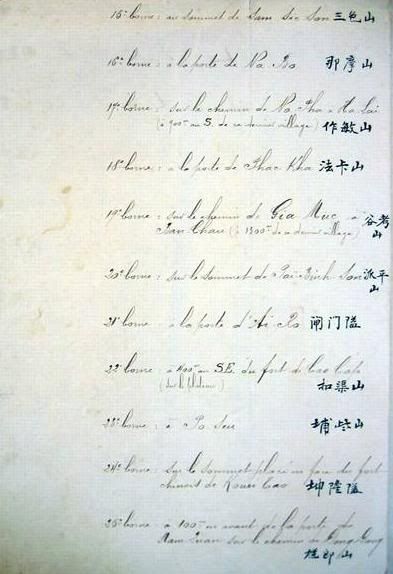 15e borne : au sommet de Sam Sec Son 三色山
16e borne : à la porte de Na Po 那摩山
17e borne : sur le chemin de Na Pha à Ha Lai
(à 900m au S. de ce dernier village) 作敏山
18e borne : à la porte de Phac Kha 法卡山
19e borne : sur le chemin de Gia Muc à 谷考
Ban Chau (à 1300m de ce dernier village) 山
20e borne : sur le sommet de Pai-Binh Son 派平
山
21e borne : à la porte d'Ai Po 闸门隘
22e borne : à 400m au S.E. du fort de Cao
(sur le plateau) 扣渠山
23e borne : à Po Seu 埔山
24e borne : sur le sommet placé en face du fort
chinois de Kouei Cao 坤隆隘
25e borne : à 100m en avant de la porte de
Nam Quan sur le chemin de Dong Dang
山